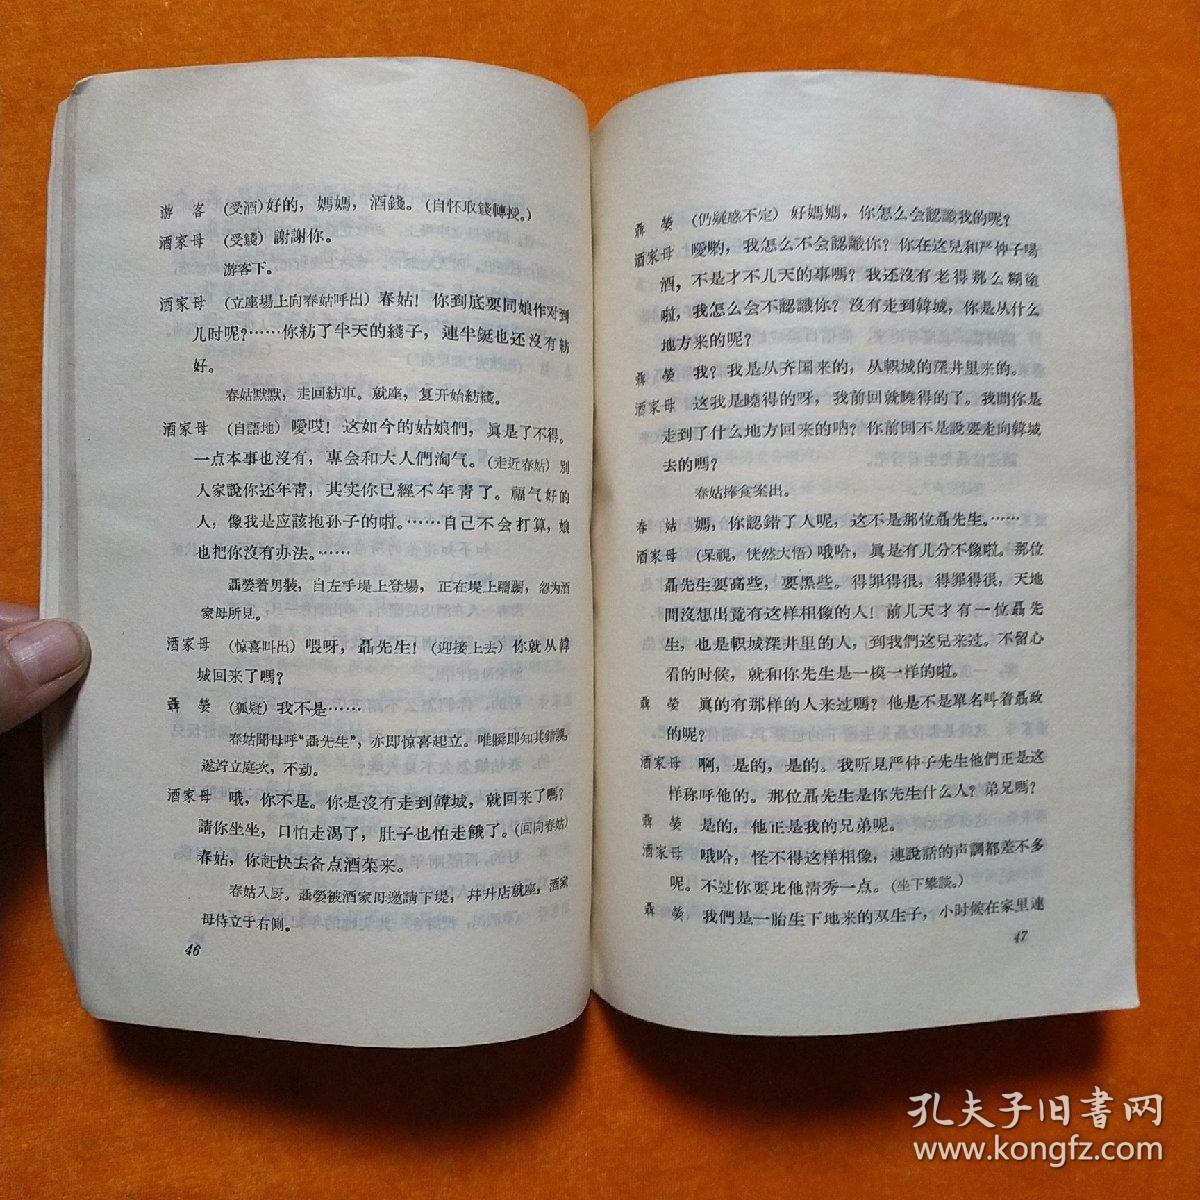 游　客　(受酒)好的，媽媽，酒錢。(自怀取錢轉挩。)
酒家母　(受錢)謝謝你。
游客下。
酒家母　(立座場上向春姑呼出)春姑！你到底要同娘作对到
儿时呢？……你紡了半天的綫子，連半鋌也还沒有紡
好。
春姑默默，走回紡車。就座，复开始紡綫。
酒家母　(自語地)噯哎！这如今的姑娘們，眞是了不得。
一点本事也沒有，專会和大人們淘气。(走近春姑)別
人家說你还年靑，其实你已經不年靑了。福气好的
人，像我是应該抱孙子的啦。……自己不会打算，娘
也把你沒有办法。……
聶嫈着男裝，自左手堤上登場，正在堤上，忽为酒
家母所見。
酒家母　(惊喜叫出)喂呀，聶先生！(迎接上去)你就从韓
城回来了嗎？
聶　嫈　(狐疑)我不是……
春姑聞母呼“聶先生”，亦即惊喜起立。唯瞬即知其錯誤，
遂竚立庭次，不动。
酒家母　哦，你不是。你是沒有走到韓城，就回来了嗎？
請你坐坐，口怕走渴了，肚子也怕走餓了。(回向春姑)
春姑，你赶快去备点酒菜来。
春姑入厨。聶嫈被酒家母邀請下堤，幷升店就座，酒家
母侍立于右側。
46
聶　嫈　(仍疑惑不定)好媽媽，你怎么会認識我的呢？
酒家母　噯喲，我怎么不会認識你？你在这兒和严仲子喝
酒，不是才不几天的事嗎？我还沒有老得那么糊塗
啦，我怎么会不認識你？沒有走到韓城，你是从什么
地方来的呢？
聶　嫈　我？我是从齐国来的，从軹城的深井里来的。
酒家母　这我是曉得的呀，我前回就曉得的了。我問你是
走到了什么地方回来的吶？你前回不是說要走向韓城
去的嗎？
春姑捧食案出。
春　姑　媽，你認錯了人呢，这不是那位聶先生。……
酒家母　(呆視，恍然大悟)哦哈，眞是有几分不像啦。那位
聶先生要高些，要黑些。得罪得很，得罪得很，天地
間沒想出竟有这样相像的人！前几天才有一位聶先
生，也是軹城深井里的人，到我們这兒来过。不留心
看的时候，就和你先生是一模一样的啦。
聶　嫈　眞的有那样的人来过嗎？他是不是單名叫着聶政
的呢？
酒家母　啊，是的，是的。我听見严仲子先生他們正是这
样称呼他的。那位聶先生是你先生什么人？弟兄嗎？
聶　嫈　是的，他正是我的兄弟呢。
酒家母　哦哈，怪不得这样相像，連說話的声調都差不多
呢。不过你要比他清秀一点。(坐下攀談。)
聶　嫈　我們是一胎生下地来的双生子，小时候在家里連
47
孔夫子旧書网
www.kongfz.com